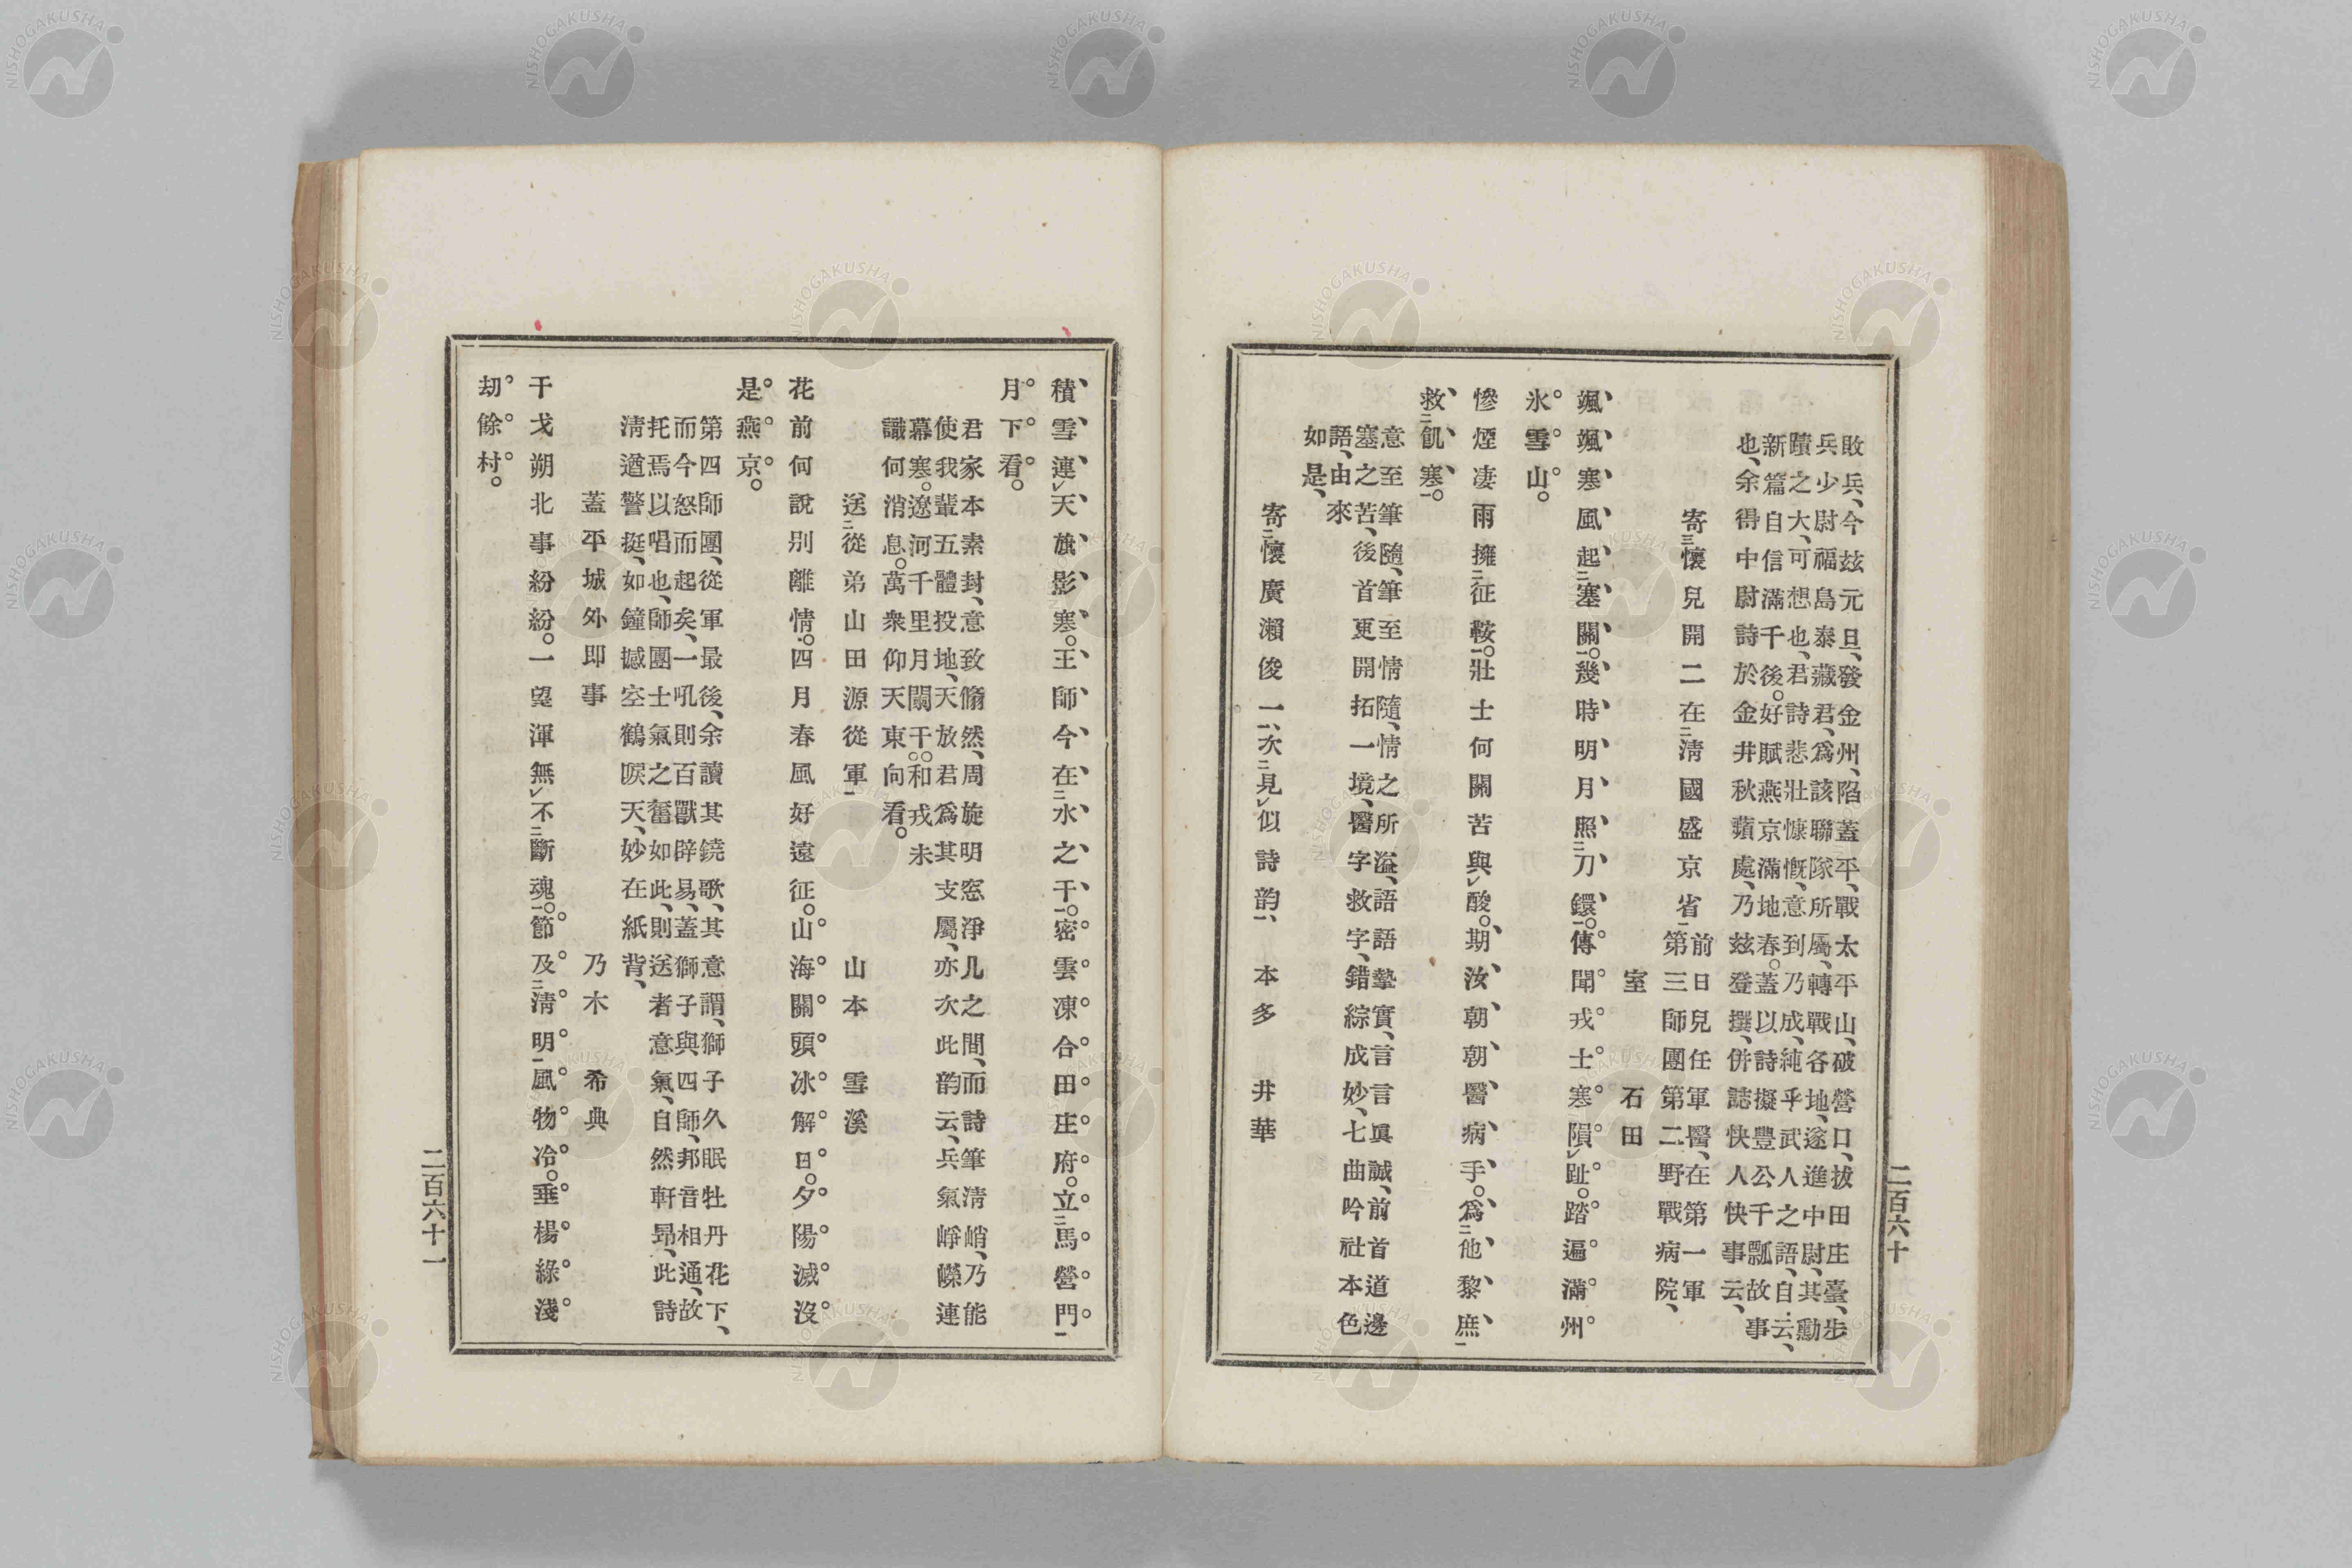 敗兵、今茲元旦、發金州、陷蓋平、戰太平山、破營口、拔田庄臺、步
兵少尉福島泰藏君、爲該聯隊所屬、轉戰各地、遂進中尉、其勳
蹟之大、可想也、君詩悲壯慷慨、意到乃成、純乎武人之語、自云、
新篇自信滿千後。好賦燕京滿地春。蓋以詩擬豐公千瓢故事
也、余得中尉詩於金井秋蘋處、乃茲登撰、併誌快人快事云、
寄懷兒開二在淸國盛京省
前日兒任軍醫、在第一軍
第三師團第二野戰病院、
室石田
颯颯寒風起塞關。幾時明月照刀鐶。傳聞戎士寒隕趾。踏遍滿州
氷雪山。
慘煙凄雨擁征鞍。壯士何關苦與酸。期汝朝朝醫病手。爲他黎庶
救飢寒。
意至筆隨、筆至情隨、情之所溢、語語摯實、言言眞誠、前首道邊
塞之苦、後首更開拓一境、醫字救字、錯綜成妙、七曲吟社本色
語、由來
如是、
寄懷廣瀨俊一、次見似詩韵、 本多井華
二百六十
積雪連天旗影寒。王師今在水之干。密雲凍合田庄府。立馬營門
月下看。
君家本素封、意致翛然、周旋明窓淨几之間、而詩筆淸峭、乃能
使我輩五體投地、天放君爲其支屬、亦次此韵云、兵氣崢嶸連
幕寒。遼河千里月闌干。和戎未
識何消息。萬衆仰天東向看。
送從弟山田源從軍 山本雪溪
花前何說別離情。四月春風好遠征。山海關頭冰解日。夕陽滅沒
是燕京。
第四師團、從軍最後、余讀其鐃歌、其意謂、獅子久眠牡丹花下、
而今怒而起矣、一吼則百獸辟易、蓋獅子與四師、邦音相通、故
托焉以唱也、師團士氣之奮如此、則送者意氣、自然軒昻、此詩
淸遒警挺、如鐘撼空鶴唳天、妙在紙背、
蓋平城外即事 乃木希典
干戈朔北事紛紛。一望渾無不斷魂。節及淸明風物冷。垂楊綠淺
劫餘村。
二百六十一
NISHOGAKUSHA